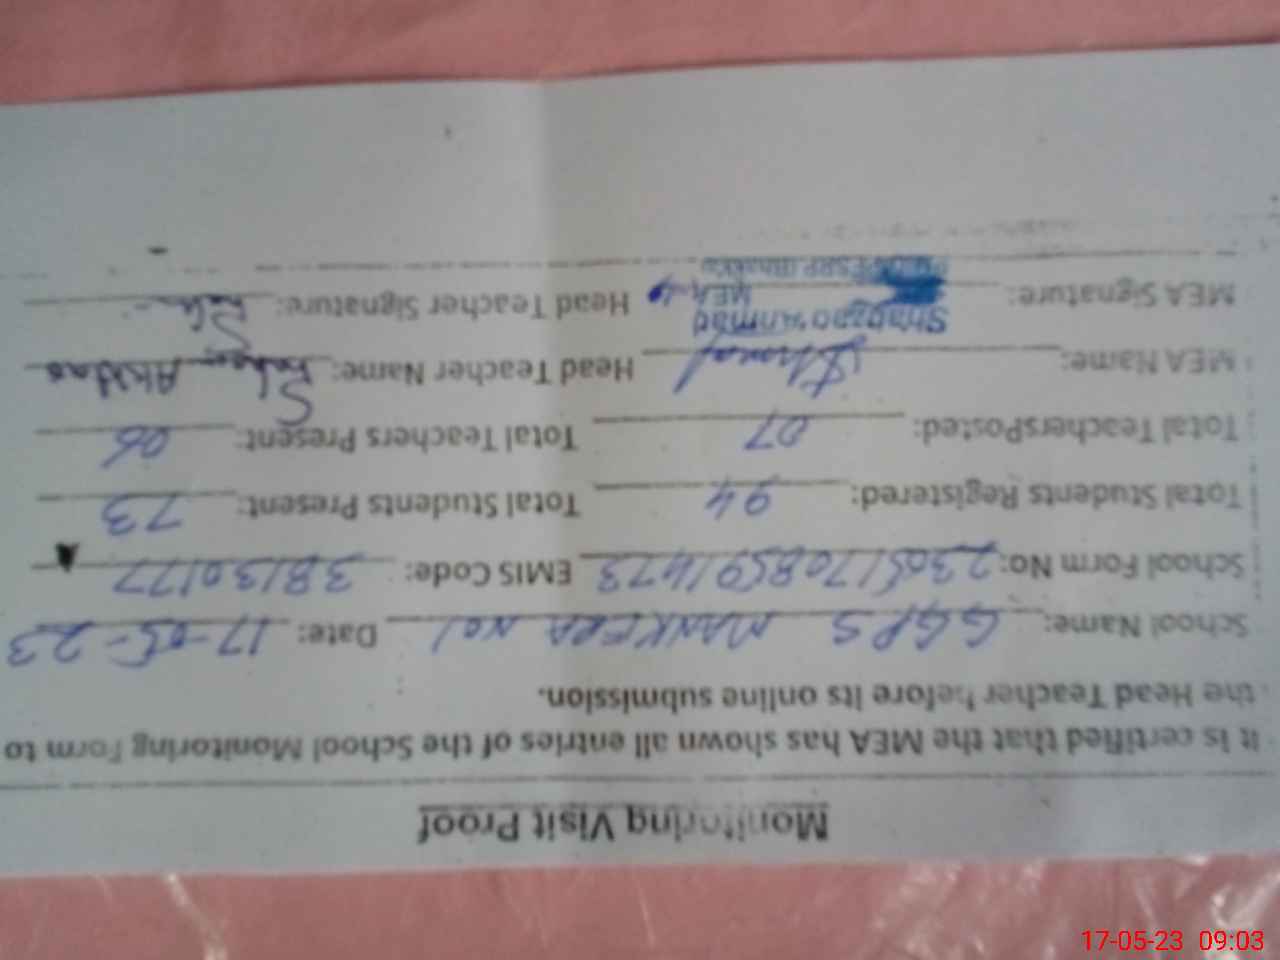 Monitoring Visit Proof
It is certified that the MEA has shown all entries of the School Monitoring Form to
the Head Teacher before its online submission.
School Name: GGPS MANKERA NO1 Date: 17-05-23
School Form No: 230517085591473 EMIS Code: 38130177
Total Students Registered: 94 Total Students Present: 73
Total TeachersPosted: 07 Total Teachers Present: 06
MEA Name: Head Teacher Name:
MEA Signature: Ahmad MEA Head Teacher Signature:
17-05-23 09:03